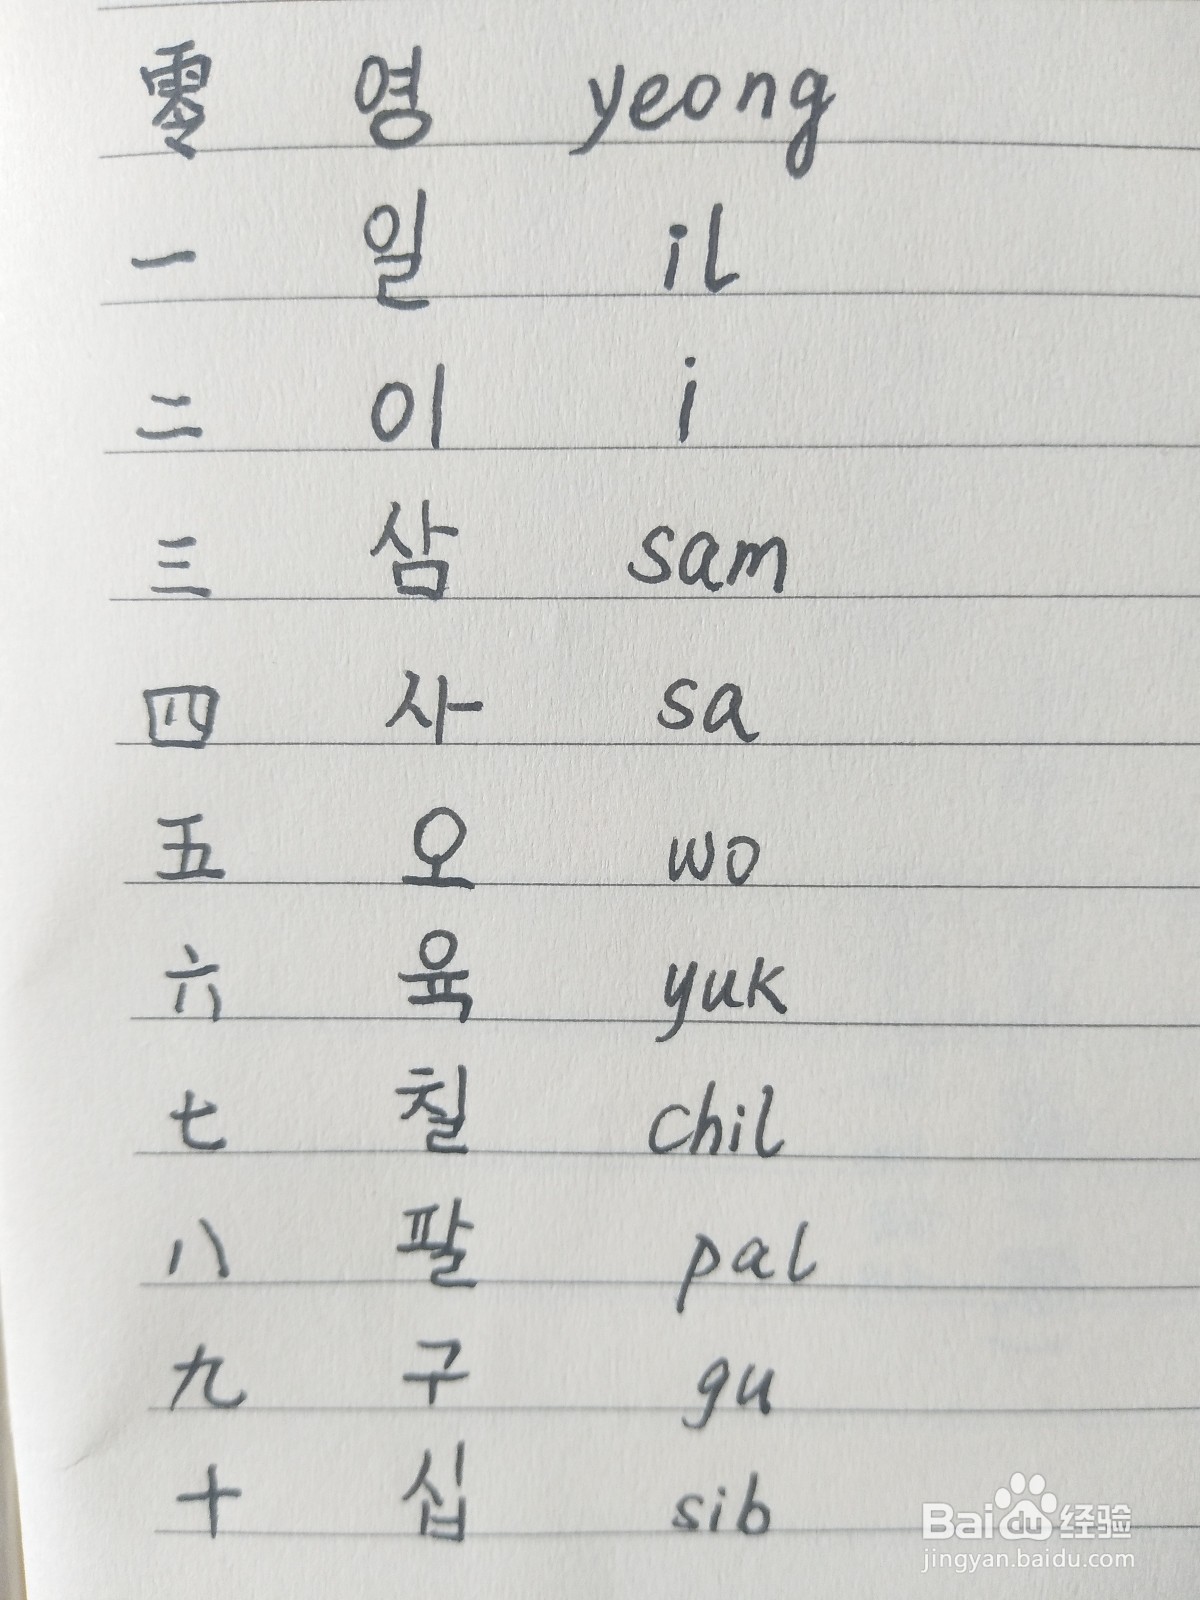 零 영 yeong
一 일 il
二 이 i
三 삼 sam
四 사 sa
五 오 wo
六 육 yuk
七 칠 chil
八 팔 pal
九 구 gu
十 십 sib
Baidu 经验
jingyan.baidu.com